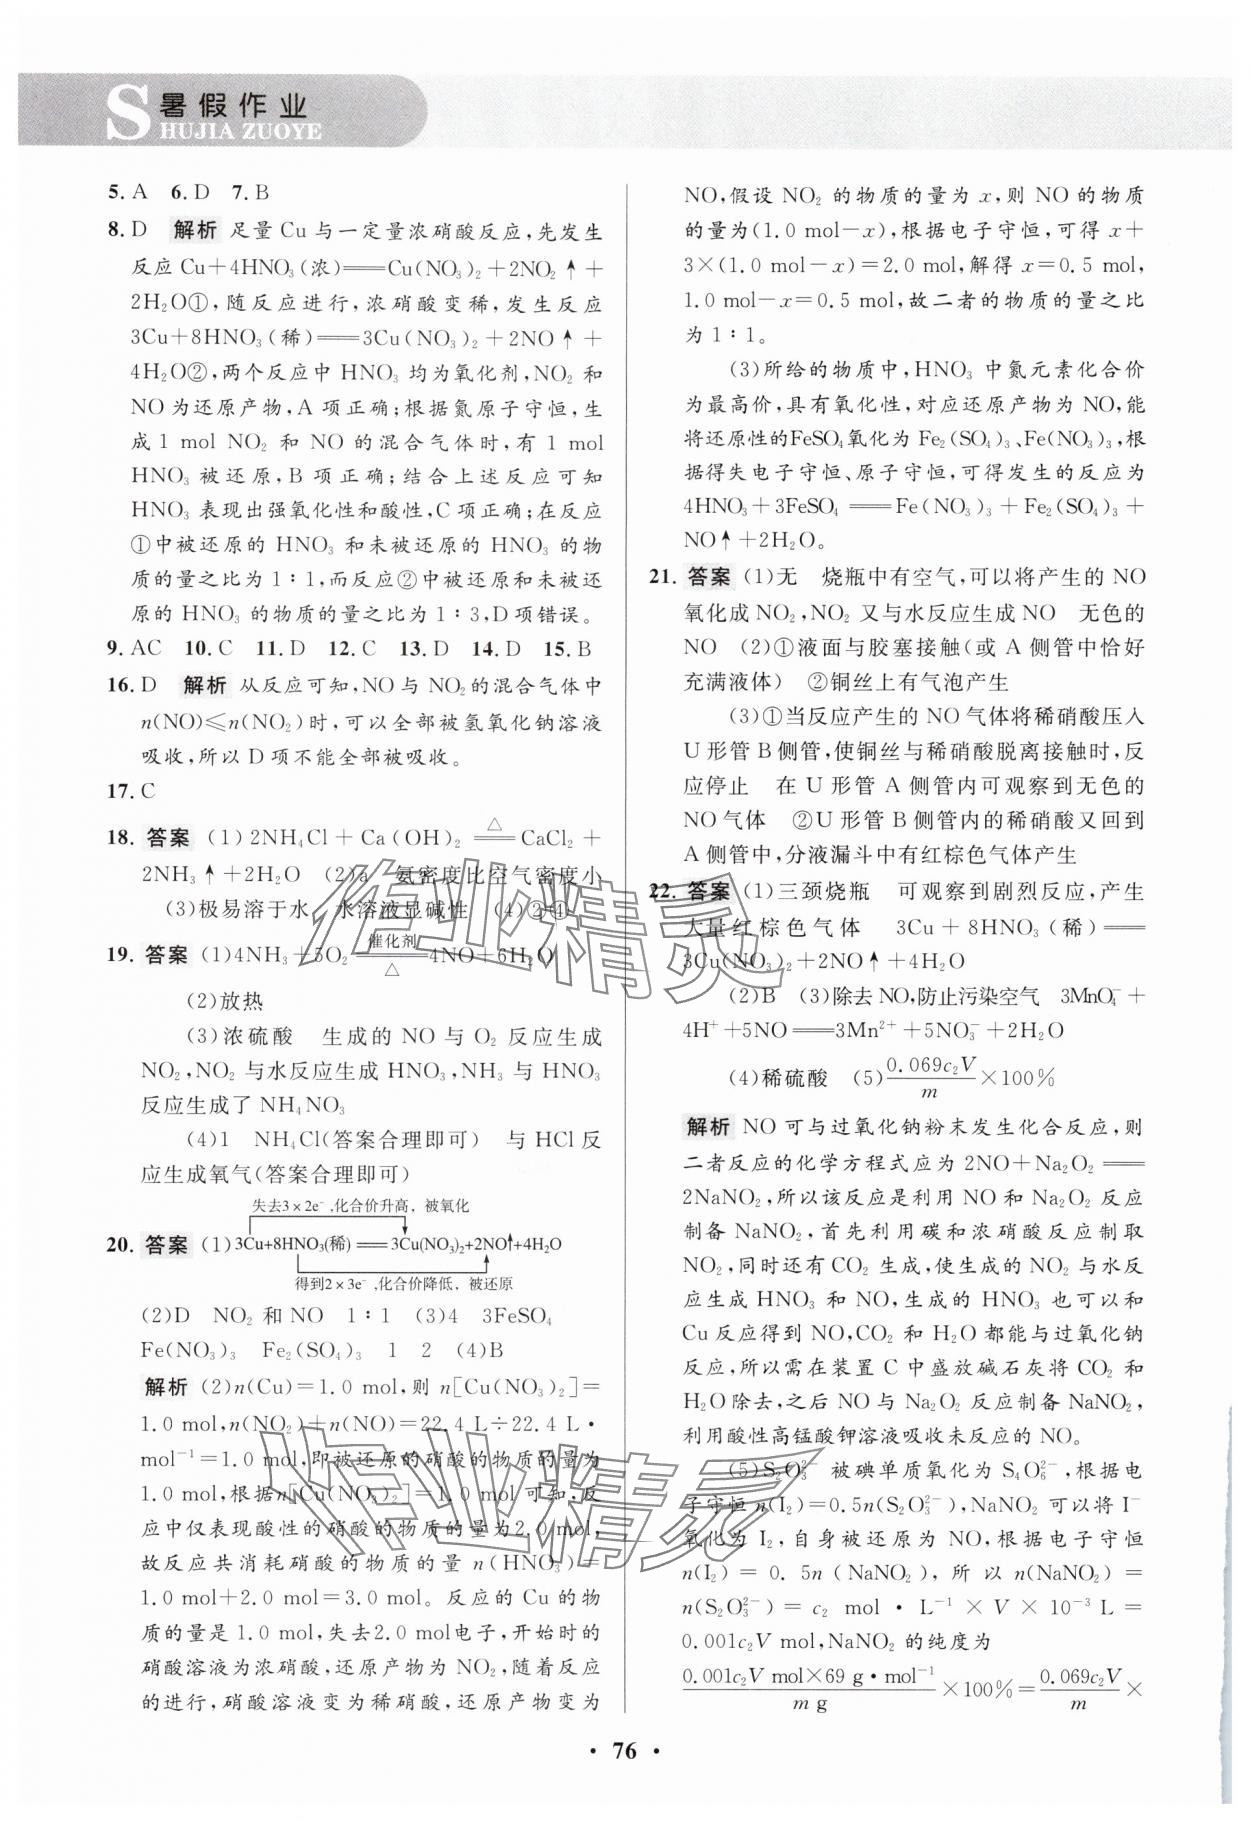 暑假作业
SHUJIA ZUOYE
5. A 6. D 7. B
8. D 解析 足量 Cu 与一定量浓硝酸反应,先发生
反应 Cu+4HNO₃(浓)══Cu(NO₃)₂+2NO₂↑+
2H₂O①,随反应进行,浓硝酸变稀,发生反应
3Cu+8HNO₃(稀)══3Cu(NO₃)₂+2NO↑+
4H₂O②,两个反应中 HNO₃ 均为氧化剂,NO₂ 和
NO 为还原产物,A 项正确;根据氮原子守恒,生
成 1 mol NO₂ 和 NO 的混合气体时,有 1 mol
HNO₃ 被还原,B 项正确;结合上述反应可知
HNO₃ 表现出强氧化性和酸性,C 项正确;在反应
①中被还原的 HNO₃ 和未被还原的 HNO₃ 的物
质的量之比为 1∶1,而反应②中被还原和未被还
原的 HNO₃ 的物质的量之比为 1∶3,D 项错误。
9. AC 10. C 11. D 12. C 13. D 14. D 15. B
16. D 解析 从反应可知,NO 与 NO₂ 的混合气体中
n(NO)≤n(NO₂)时,可以全部被氢氧化钠溶液
吸收,所以 D 项不能全部被吸收。
17. C
18. 答案 (1)2NH₄Cl+Ca(OH)₂ ═△═ CaCl₂+
2NH₃↑+2H₂O (2)a 氨密度比空气密度小
(3)极易溶于水 水溶液显碱性 (4)②④
19. 答案 (1)4NH₃+5O₂ ═催化剂/△═ 4NO+6H₂O
(2)放热
(3)浓硫酸 生成的 NO 与 O₂ 反应生成
NO₂,NO₂ 与水反应生成 HNO₃,NH₃ 与 HNO₃
反应生成了 NH₄NO₃
(4)1 NH₄Cl(答案合理即可) 与 HCl 反
应生成氧气(答案合理即可)
失去3×2e⁻,化合价升高,被氧化
20. 答案 (1)3Cu+8HNO₃(稀)══3Cu(NO₃)₂+2NO↑+4H₂O
得到2×3e⁻,化合价降低,被还原
(2)D NO₂ 和 NO 1∶1 (3)4 3FeSO₄
Fe(NO₃)₃ Fe₂(SO₄)₃ 1 2 (4)B
解析 (2)n(Cu)=1.0 mol,则 n[Cu(NO₃)₂]=
1.0 mol,n(NO₂)+n(NO)=22.4 L÷22.4 L·
mol⁻¹=1.0 mol,即被还原的硝酸的物质的量为
1.0 mol,根据n[Cu(NO₃)₂]=1.0 mol 可知,反
应中仅表现酸性的硝酸的物质的量为2.0 mol,
故反应共消耗硝酸的物质的量 n(HNO₃)=
1.0 mol+2.0 mol=3.0 mol。反应的 Cu 的物
质的量是 1.0 mol,失去2.0 mol电子,开始时的
硝酸溶液为浓硝酸,还原产物为 NO₂,随着反应
的进行,硝酸溶液变为稀硝酸,还原产物变为
NO,假设 NO₂ 的物质的量为 x,则 NO 的物质
的量为(1.0 mol−x),根据电子守恒,可得 x+
3×(1.0 mol−x)=2.0 mol,解得 x=0.5 mol,
1.0 mol−x=0.5 mol,故二者的物质的量之比
为 1∶1。
(3)所给的物质中,HNO₃ 中氮元素化合价
为最高价,具有氧化性,对应还原产物为 NO,能
将还原性的FeSO₄氧化为 Fe₂(SO₄)₃、Fe(NO₃)₃,根
据得失电子守恒、原子守恒,可得发生的反应为
4HNO₃+3FeSO₄══Fe(NO₃)₃+Fe₂(SO₄)₃+
NO↑+2H₂O。
21. 答案 (1)无 烧瓶中有空气,可以将产生的 NO
氧化成 NO₂,NO₂ 又与水反应生成 NO 无色的
NO (2)①液面与胶塞接触(或 A 侧管中恰好
充满液体) ②铜丝上有气泡产生
(3)①当反应产生的 NO 气体将稀硝酸压入
U 形管 B 侧管,使铜丝与稀硝酸脱离接触时,反
应停止 在 U 形管 A 侧管内可观察到无色的
NO 气体 ②U 形管 B 侧管内的稀硝酸又回到
A 侧管中,分液漏斗中有红棕色气体产生
22. 答案 (1)三颈烧瓶 可观察到剧烈反应,产生
大量红棕色气体 3Cu+8HNO₃(稀)══
3Cu(NO₃)₂+2NO↑+4H₂O
(2)B (3)除去 NO,防止污染空气 3MnO₄⁻+
4H⁺+5NO══3Mn²⁺+5NO₃⁻+2H₂O
(4)稀硫酸 (5)0.069c₂V/m×100%
解析 NO 可与过氧化钠粉末发生化合反应,则
二者反应的化学方程式应为 2NO+Na₂O₂══
2NaNO₂,所以该反应是利用 NO 和 Na₂O₂ 反应
制备 NaNO₂,首先利用碳和浓硝酸反应制取
NO₂,同时还有 CO₂ 生成,使生成的 NO₂ 与水反
应生成 HNO₃ 和 NO,生成的 HNO₃ 也可以和
Cu 反应得到 NO,CO₂ 和 H₂O 都能与过氧化钠
反应,所以需在装置 C 中盛放碱石灰将 CO₂ 和
H₂O 除去,之后 NO 与 Na₂O₂ 反应制备 NaNO₂,
利用酸性高锰酸钾溶液吸收未反应的 NO。
(5)S₂O₃²⁻ 被碘单质氧化为 S₄O₆²⁻,根据电
子守恒n(I₂)=0.5n(S₂O₃²⁻),NaNO₂ 可以将 I⁻
氧化为 I₂,自身被还原为 NO,根据电子守恒
n(I₂)=0.5n(NaNO₂),所以 n(NaNO₂)=
n(S₂O₃²⁻)=c₂ mol·L⁻¹×V×10⁻³ L=
0.001c₂V mol,NaNO₂ 的纯度为
0.001c₂V mol×69 g·mol⁻¹/m g×100%=0.069c₂V/m×
·76·
作业精灵
作业精灵